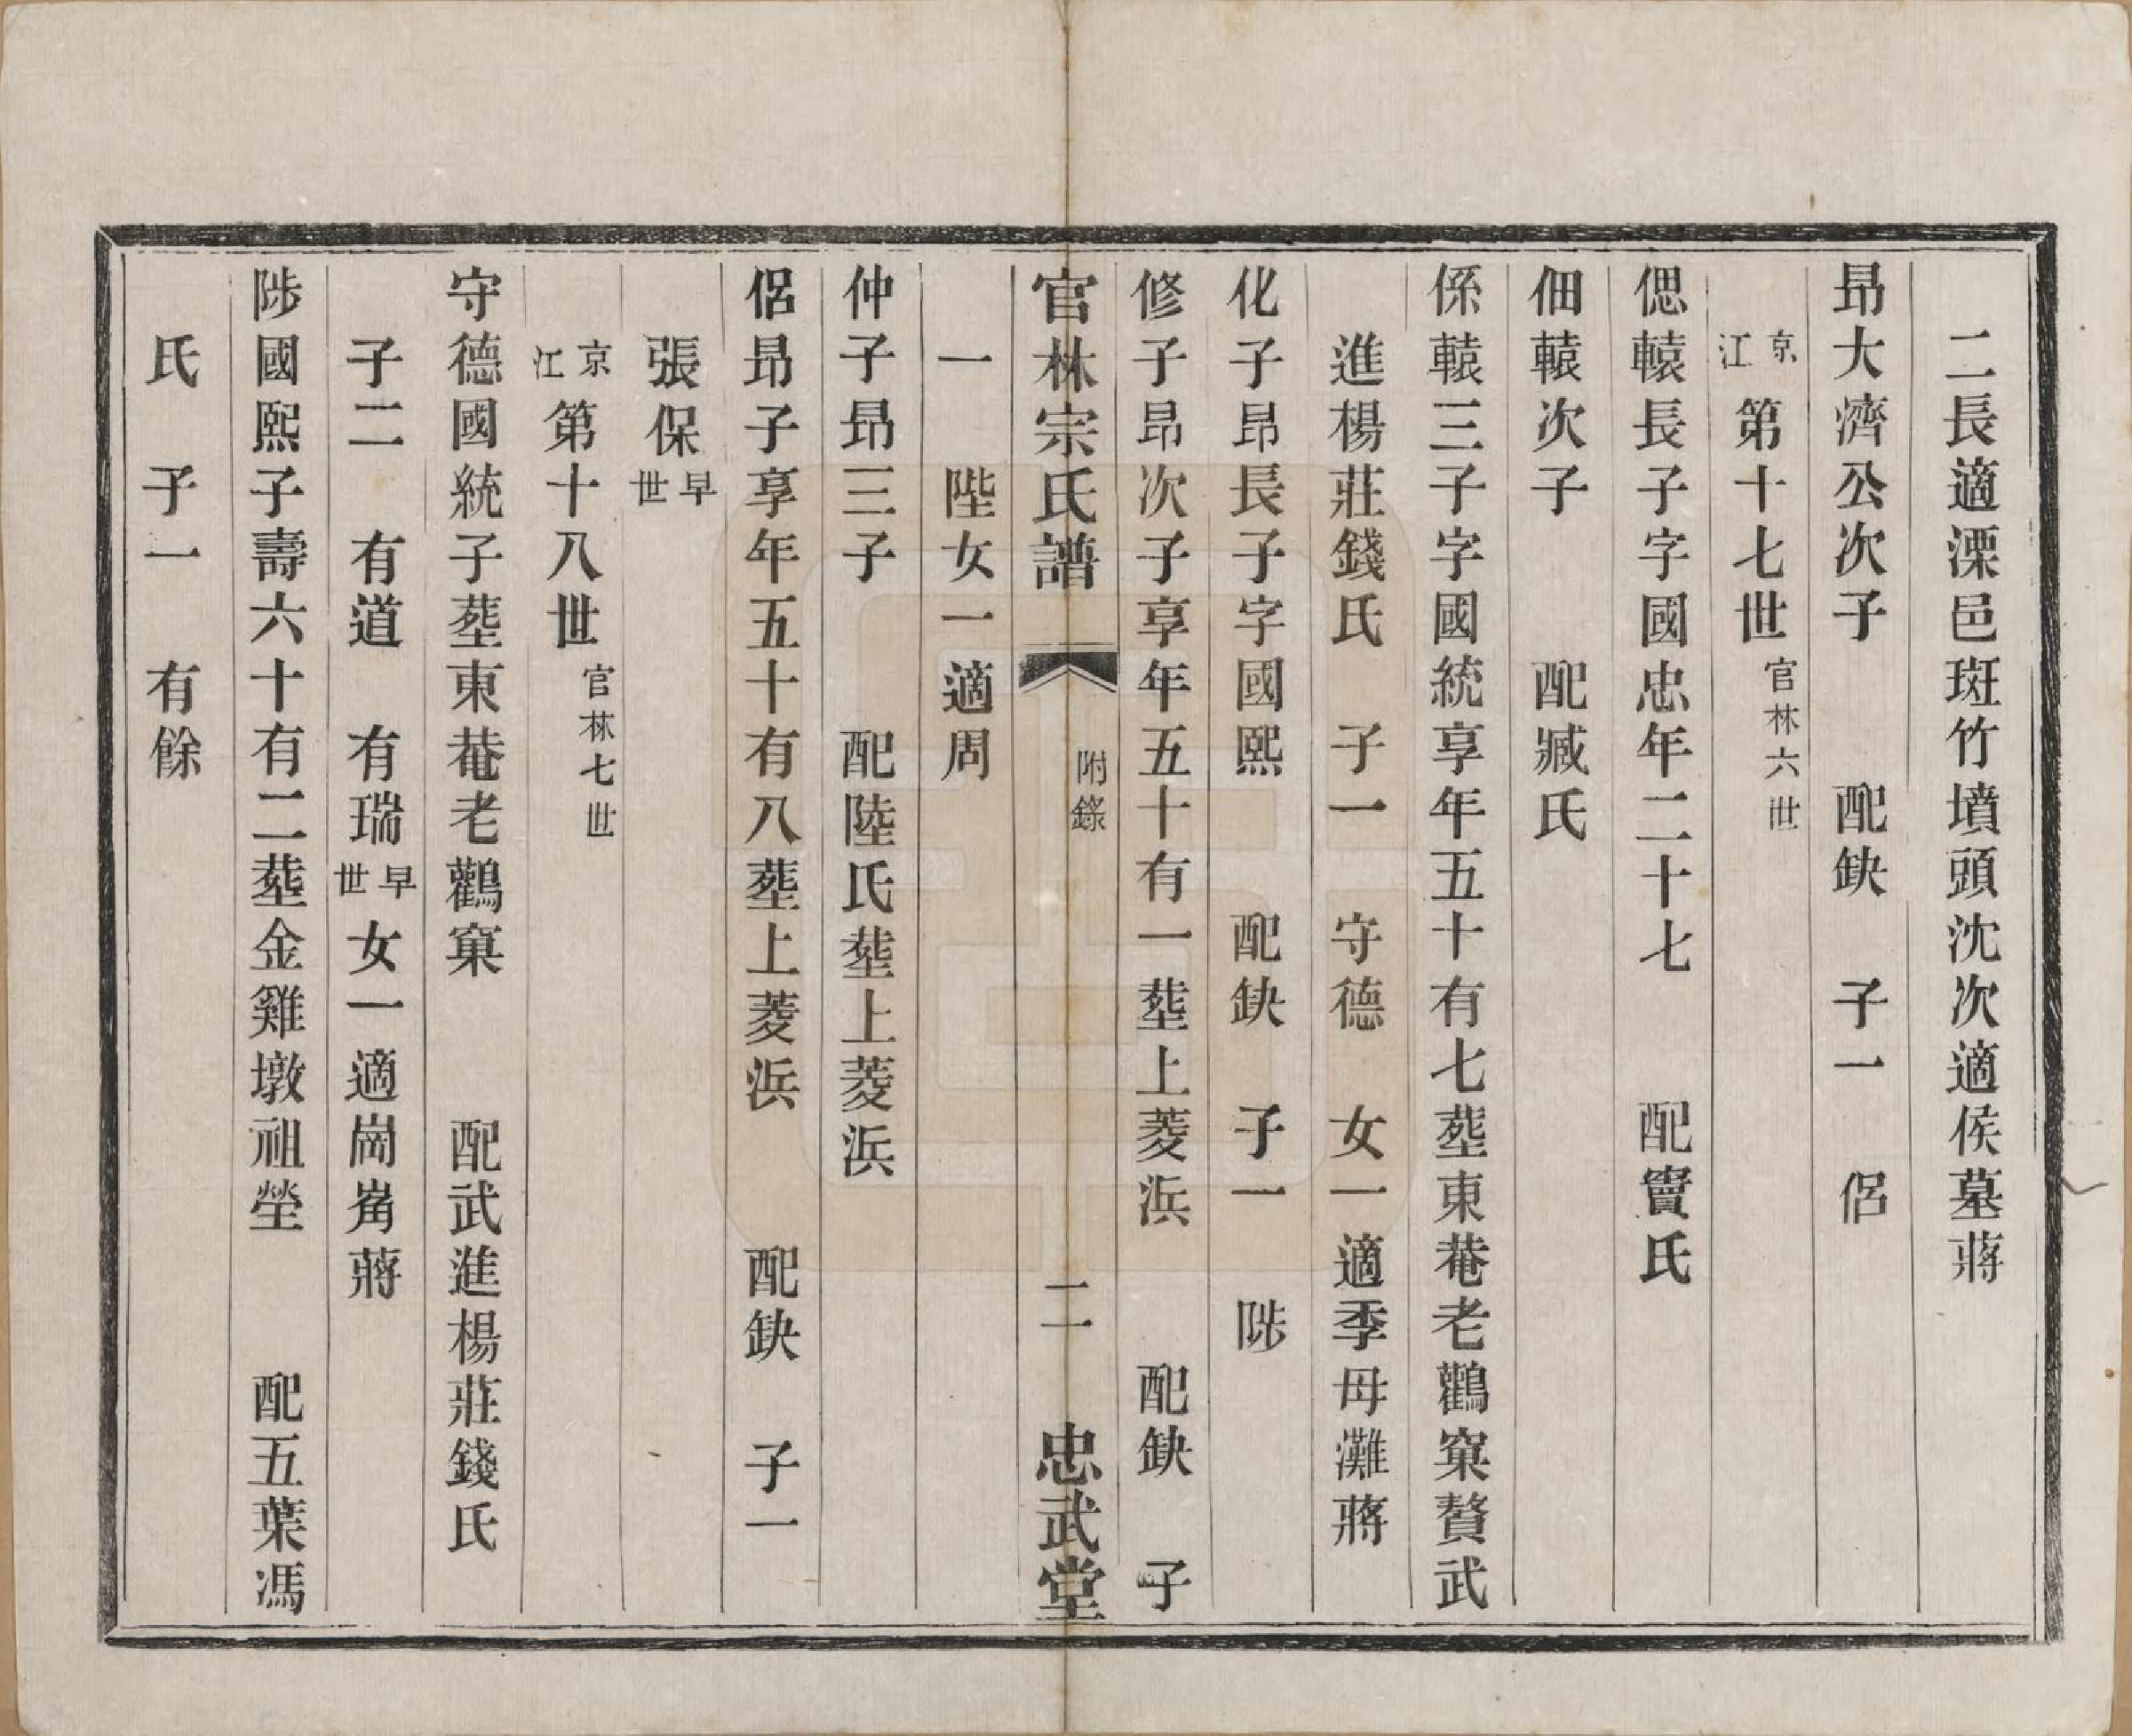 二長適溧邑斑竹墳頭沈次適侯墓蔣
昻大濟公次子　配缺　子一　侶
京江第十七世官林六世
偲轅長子字國忠年二十七　配竇氏
佃轅次子　配臧氏
係轅三子字國統享年五十有七塟東菴老鸛窠贅武
進楊莊錢氏　子一　守德　女一適季母灘蔣
化子昻長子字國熙　配缺　子一　陟
修子昻次子享年五十有一塟上菱浜　配缺　子
官林宗氏譜　附錄　二　忠武堂
一　陛女一適周
仲子昻三子　配陸氏塟上菱浜
侶昻子享年五十有八塟上菱浜　配缺　子一
張保早世
京江第十八世官林七世
守德國統子塟東菴老鸛窠　配武進楊莊錢氏
子二　有道　有瑞早世女一適崗嵜蔣
陟國熙子壽六十有二塟金雞墩祖塋　配五葉馮
氏　子一　有餘